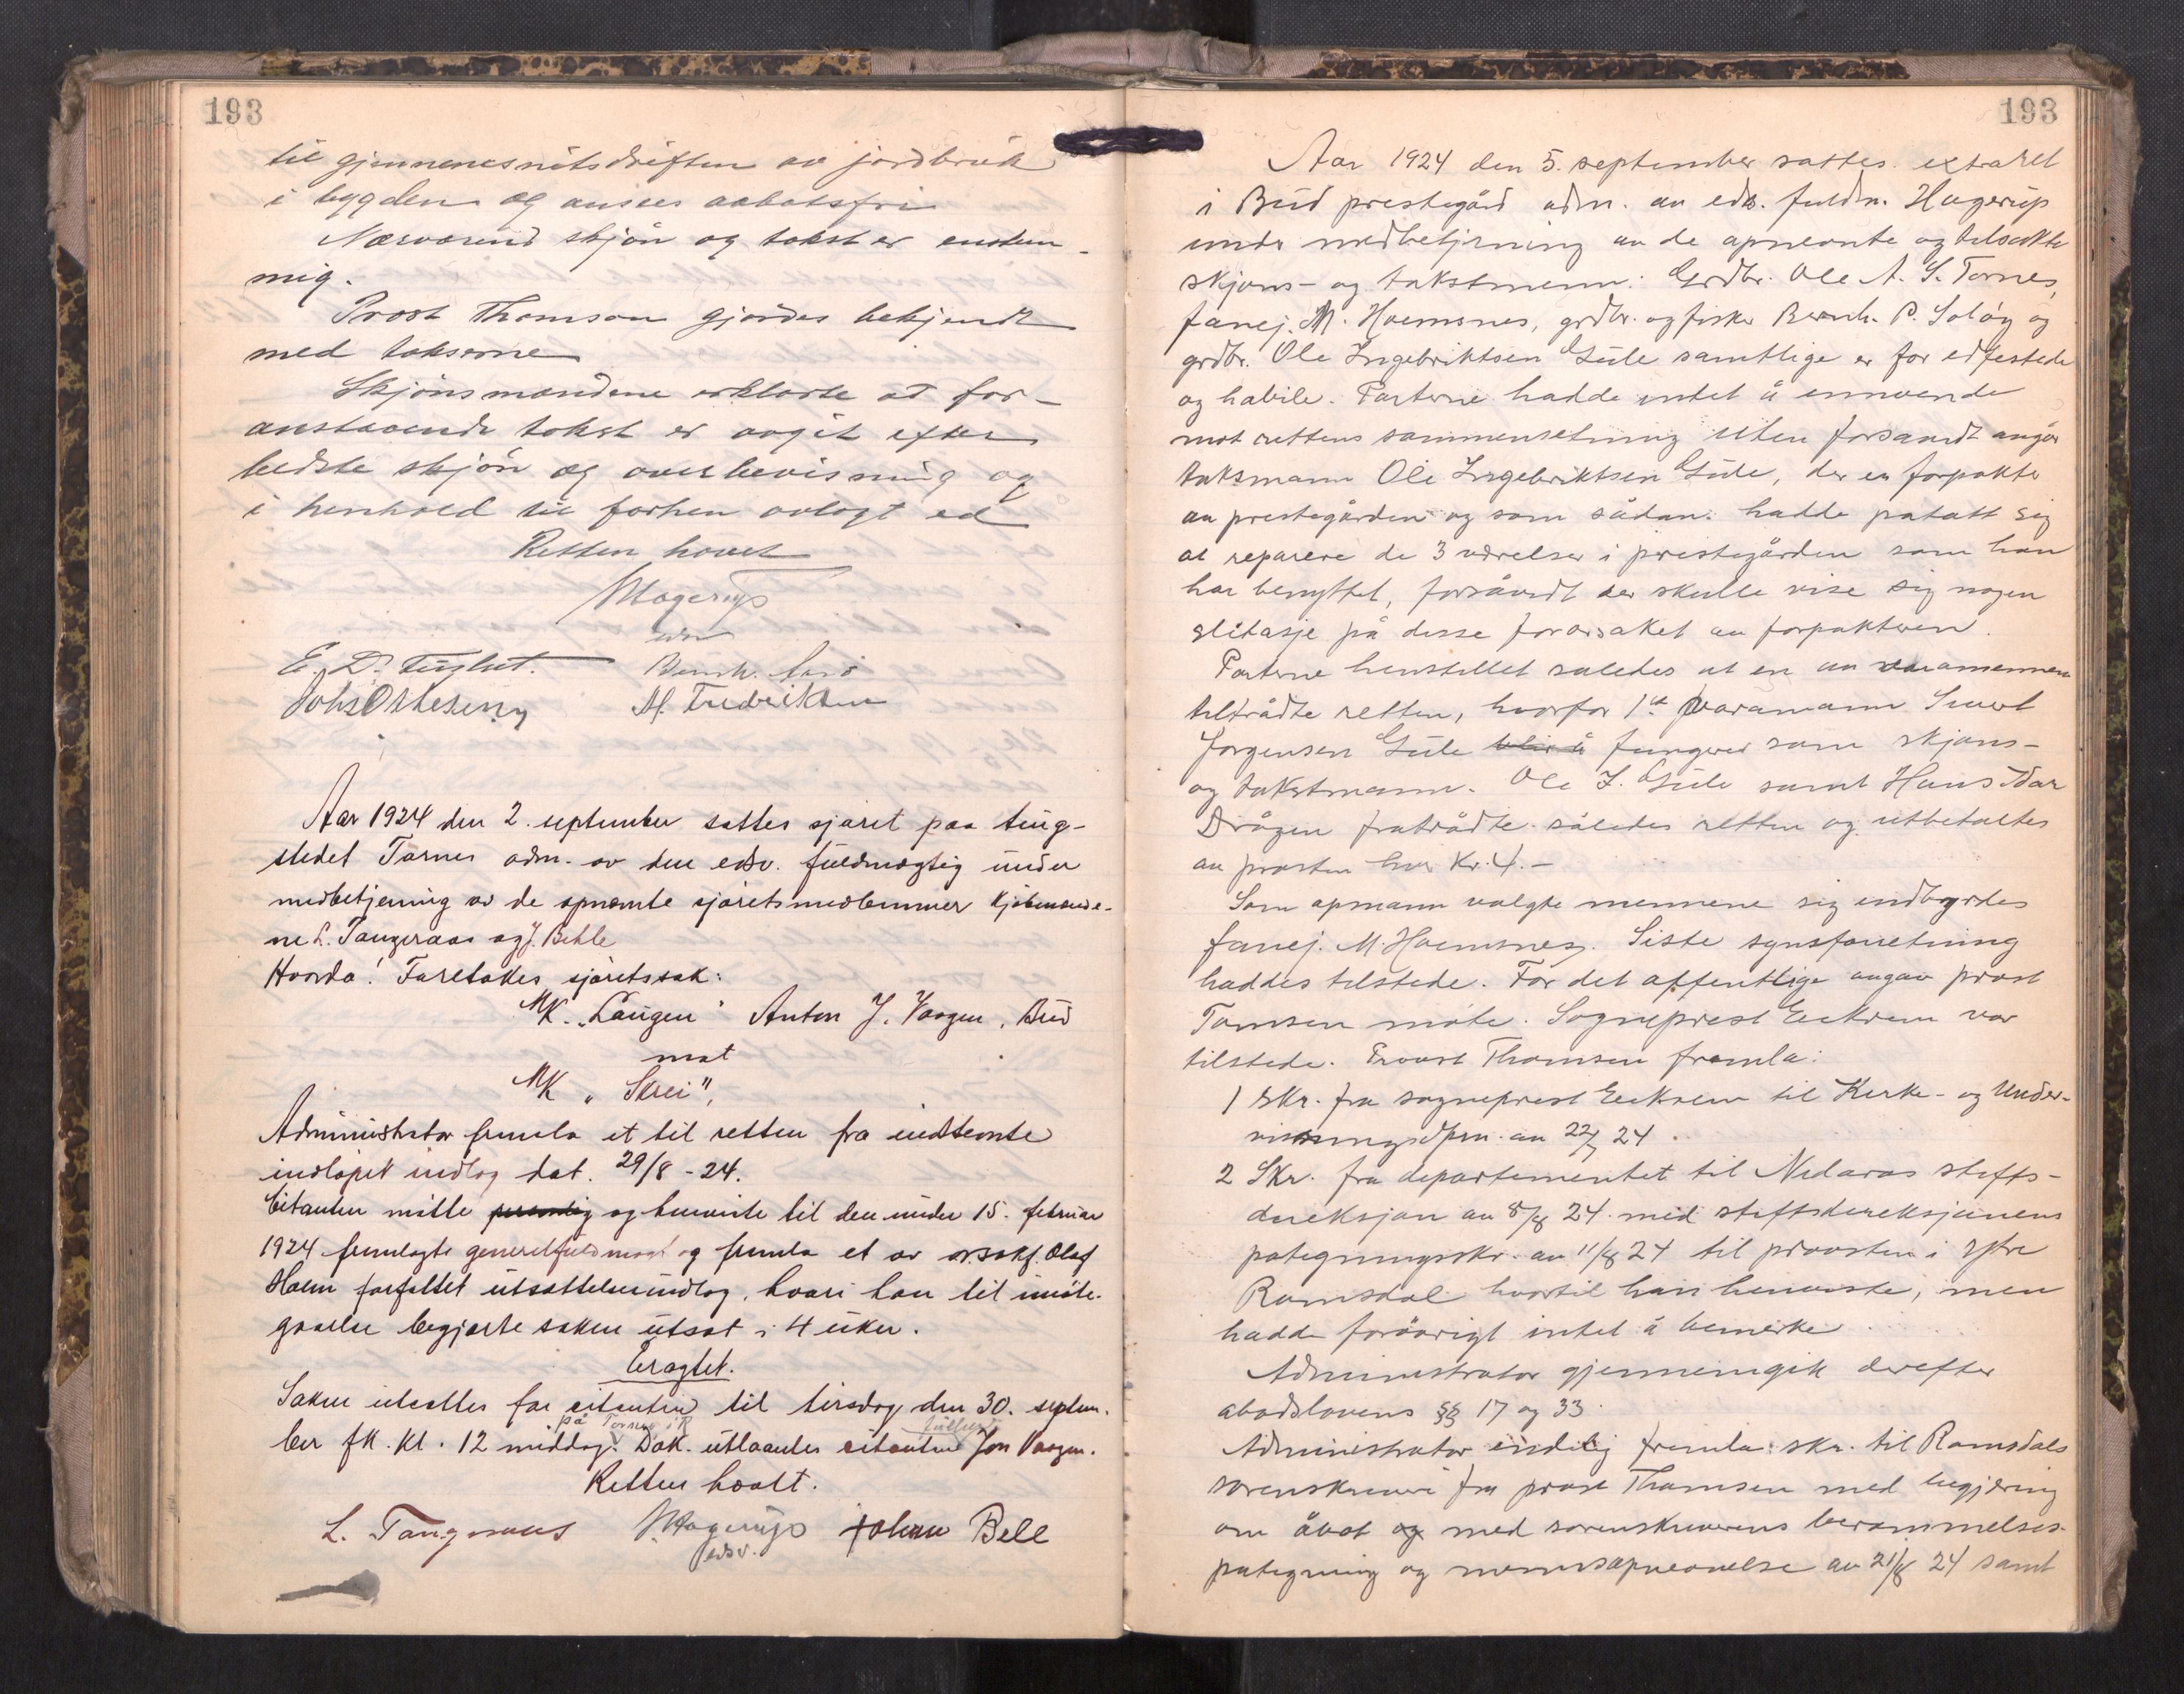 193
til gjennemsnitsdriften av jordbruk
i bygden og ansees aabotsfri
Nærværend skjøn og takst er enstem-
mig.
Prost Thomson gjordes bekjendt
med taksterne
Skjønsmændene erklærte at for-
anstaaende takst er avgit efter
bedste skjøn og overbevisning og
i henhold til forhen avlagt ed
Retten hævet
Hagerup
edsv
E. D.
M. Fredriksen
Aar 1924 den 2. september sattes sjøret paa ting-
stedet Tornes adm. av den edsv. fuldmægtig under
medbetjening av de opnævnte sjøretsmedlemmer kjøbmænde-
ne L. Tangeraas og J. Behle
Hvorda! Foretokes sjøretssak:
M/K. "Laugen" Anton J. Vaagen, Bud
mot
M/K "Skrei",
Administrator fremla et til retten fra indstevnte
indløpet indlæg dat. 29/8-24.
Citanten møtte personlig og henviste til den under 15. februar
1924 fremlagte generelfuldmagt og fremla et av o.r.sakf. Olaf
Holm forfattet utsættelsesindlæg, hvori han til imøte-
gaaelse begjærte saken utsat i 4 uker.
Eragtet.
Saken utsættes for citanten til tirsdag den 30. septem-
på Tornes i R
ber fk. kl. 12 middag. Dok. utlaantes citantens fuldm. Jon Vaagen.
Retten hævt.
L. Tangeraas Hagerup Johan Bell
edsv.
193
Aar 1924 den 5. september sattes extraret
i Bud prestegård adm. av eds. fuldm. Hagerup
under medbetjening av de opnevnte og tilsakte
skjøns- og takstmenn: Grdbr. Ole A. S. Tornes,
fanej. M. Hoemsnes, grdbr. og fisker Bernh. P. Soløy og
grdbr. Ole Ingebriktsen Gule samtlige er før edfestede
og habile. Parterne hadde intet å innvende
mot rettens sammensetning uten forsavidt angår
takstmann Ole Ingebriktsen Gule, der er forpakter
av prestegården og som sådan hadde påtatt sig
at reparere de 3 værelser i prestegården som han
har benyttet, forsåvidt der skulle vise sig nogen
slitasje på disse forårsaket av forpakteren.
Parterne henstillet således at en av varamennene
tiltrådte retten, hvorfor 1st varamann Sivert
Jørgensen Gule blir å fungerer som skjøns-
og takstmann. Ole I. Gule samt Hans Idar
Drågen fratrådte således retten og utbetaltes
av prosten hver kr. 4.-
Som opmann valgte mennene sig indbyrdes
fanej. M. Hoemsnes. Siste synsforretning
haddes tilstede. For det offentlige avgav prost
Tomsen møte. Sogneprest Eekrem var
tilstede. Provst Thomsen fremla:
1 Skr. fra sogneprest Eekrem til Kirke- og Under-
visningsdpm. av 22/7 24.
2 Skr. fra departementet til Nidaros stifts-
direksjon av 8/8 24 med stiftsdireksjonens
påtegningsskr. av 11/8 24 til provsten i Ytre
Romsdal hvortil han henviste, men
hadde forøvrigt intet å bemerke.
Administrator gjennemgik derefter
abodslovens §§ 17 og 33.
Administrator endelig fremla skr. til Romsdals
sorenskriveri fra prost Thomsen med begjæring
om åbot og med sorenskriverens berammelses-
påtegning og mennsopnevnelse av 21/8 24 samt